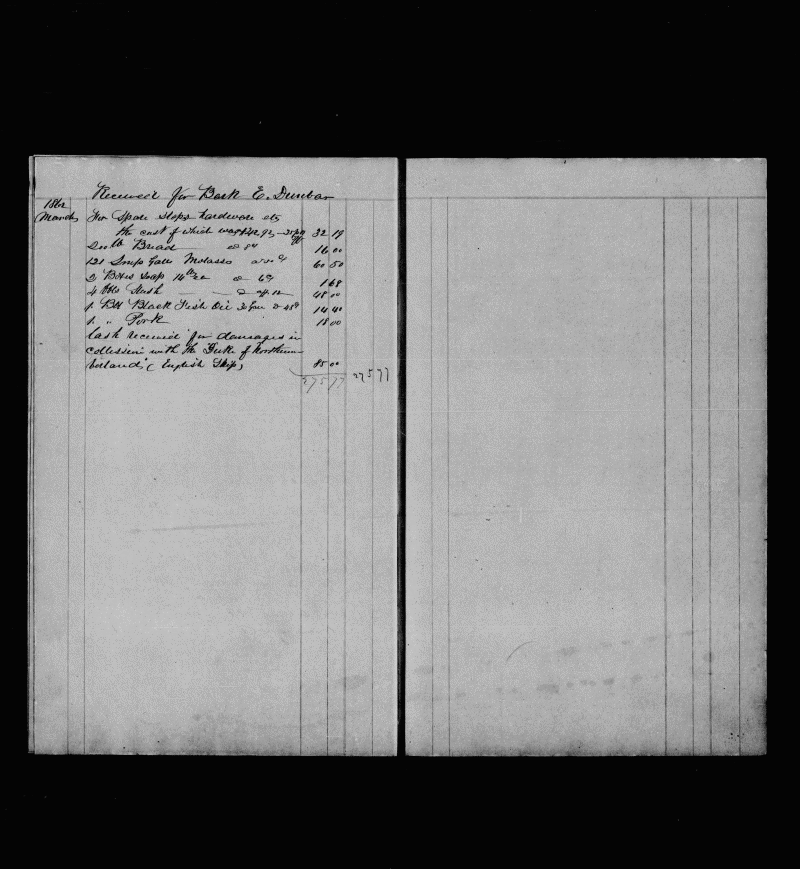 Received for Bark E. Dunbar
1862
March For Spare Slops hardware etc
the cost of which was $42.92 25 pr ct off 32 19
200 lb Bread @ 8c 16 00
121 Imp Galls Molasses @ 50c 60 50
2 Boxes Soap 14 lb ea @ 6c 1 68
4 bbls Slush @ $12 48 00
1 Bbl Black Fish Oil 30 Gall @ 48c 14 40
1 " Pork 18 00
Cash received for damages in
collission with the Duke of Northum-
berland (English Ship) 85 00
275 77 275 77